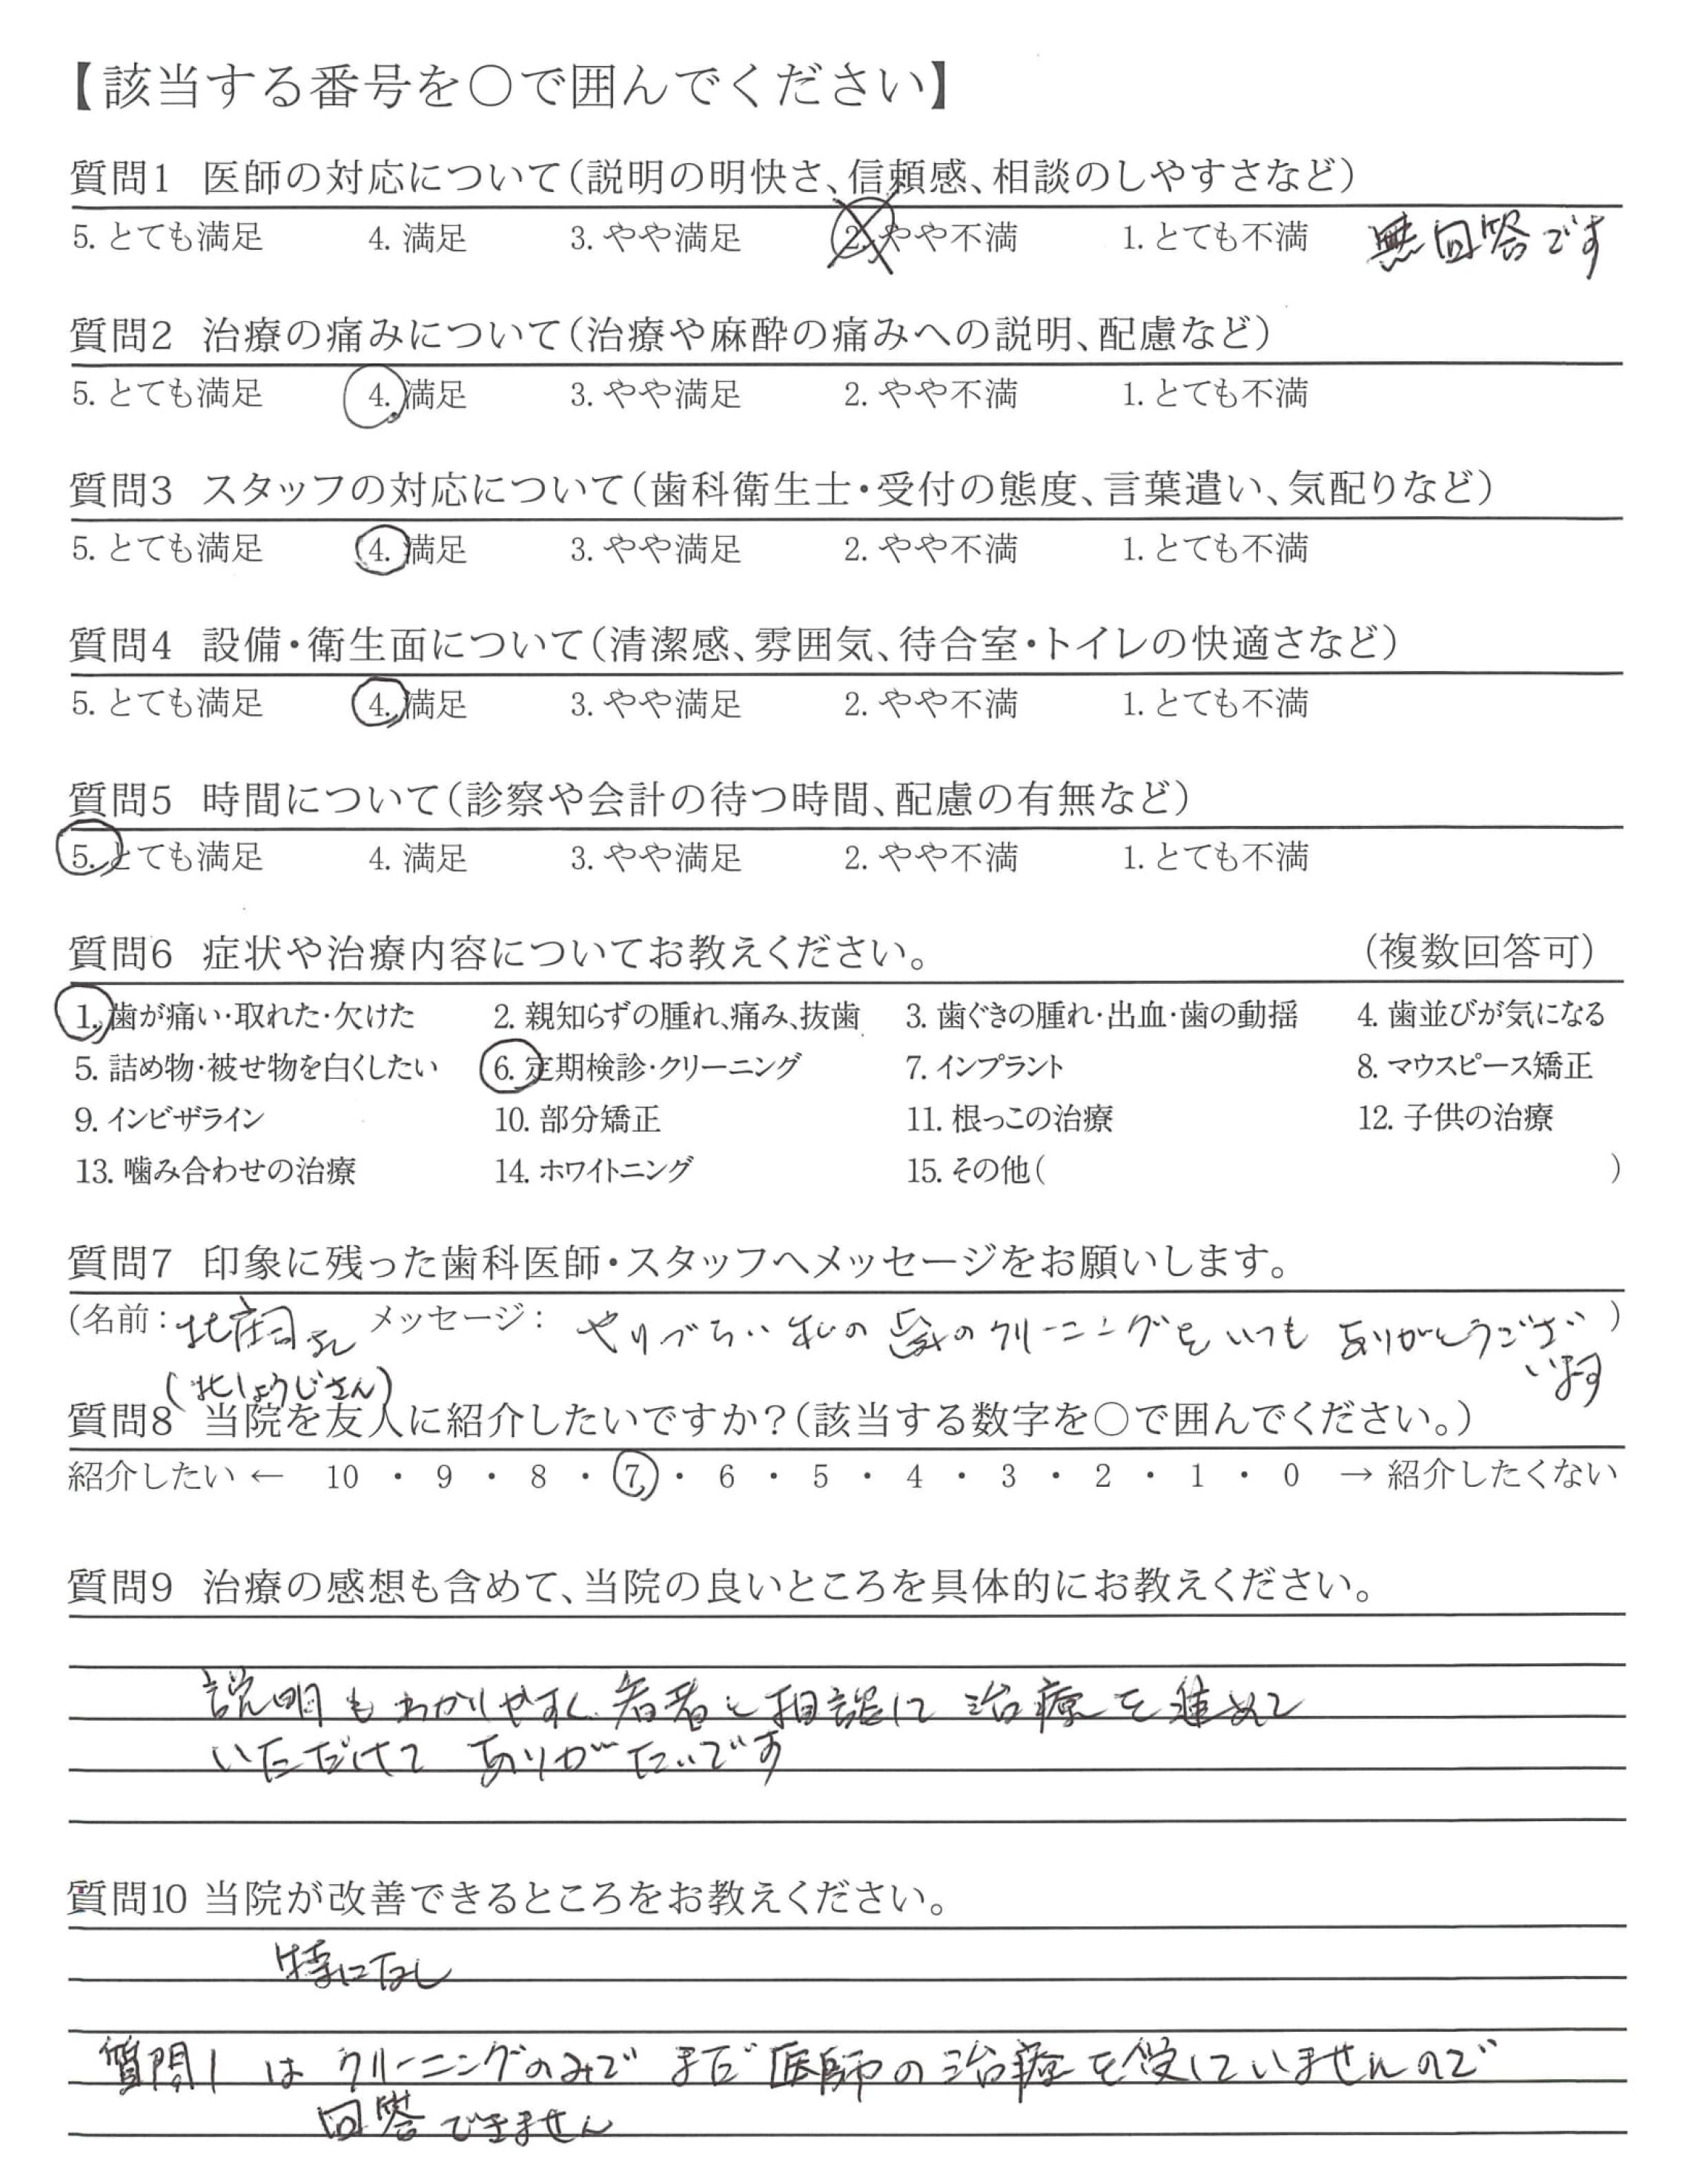 【該当する番号を○で囲んでください】
質問1 医師の対応について(説明の明快さ、信頼感、相談のしやすさなど)
5. とても満足 4. 満足 3. やや満足 2. やや不満 1. とても不満 無回答です
質問2 治療の痛みについて(治療や麻酔の痛みへの説明、配慮など)
5. とても満足 4. 満足 3. やや満足 2. やや不満 1. とても不満
質問3 スタッフの対応について(歯科衛生士・受付の態度、言葉遣い、気配りなど)
5. とても満足 4. 満足 3. やや満足 2. やや不満 1. とても不満
質問4 設備・衛生面について(清潔感、雰囲気、待合室・トイレの快適さなど)
5. とても満足 4. 満足 3. やや満足 2. やや不満 1. とても不満
質問5 時間について(診察や会計の待つ時間、配慮の有無など)
5. とても満足 4. 満足 3. やや満足 2. やや不満 1. とても不満
質問6 症状や治療内容についてお教えください。 (複数回答可)
1. 歯が痛い・取れた・欠けた 2. 親知らずの腫れ、痛み、抜歯 3. 歯ぐきの腫れ・出血・歯の動揺 4. 歯並びが気になる
5. 詰め物・被せ物を白くしたい 6. 定期検診・クリーニング 7. インプラント 8. マウスピース矯正
9. インビザライン 10. 部分矯正 11. 根っこの治療 12. 子供の治療
13. 噛み合わせの治療 14. ホワイトニング 15. その他( )
質問7 印象に残った歯科医師・スタッフへメッセージをお願いします。
(名前: 北庄司さん メッセージ: やりづらい私の歯のクリーニングをいつもありがとうござ )
います
(北しょうじさん)
質問8 当院を友人に紹介したいですか?(該当する数字を○で囲んでください。)
紹介したい ← 10 ・ 9 ・ 8 ・ 7 ・ 6 ・ 5 ・ 4 ・ 3 ・ 2 ・ 1 ・ 0 → 紹介したくない
質問9 治療の感想も含めて、当院の良いところを具体的にお教えください。
説明もわかりやすく、患者と相談に治療を進めて
いただけて ありがたいです
質問10 当院が改善できるところをお教えください。
特になし
質問1は クリーニングのみで まだ 医師の治療を受していませんので
回答できません